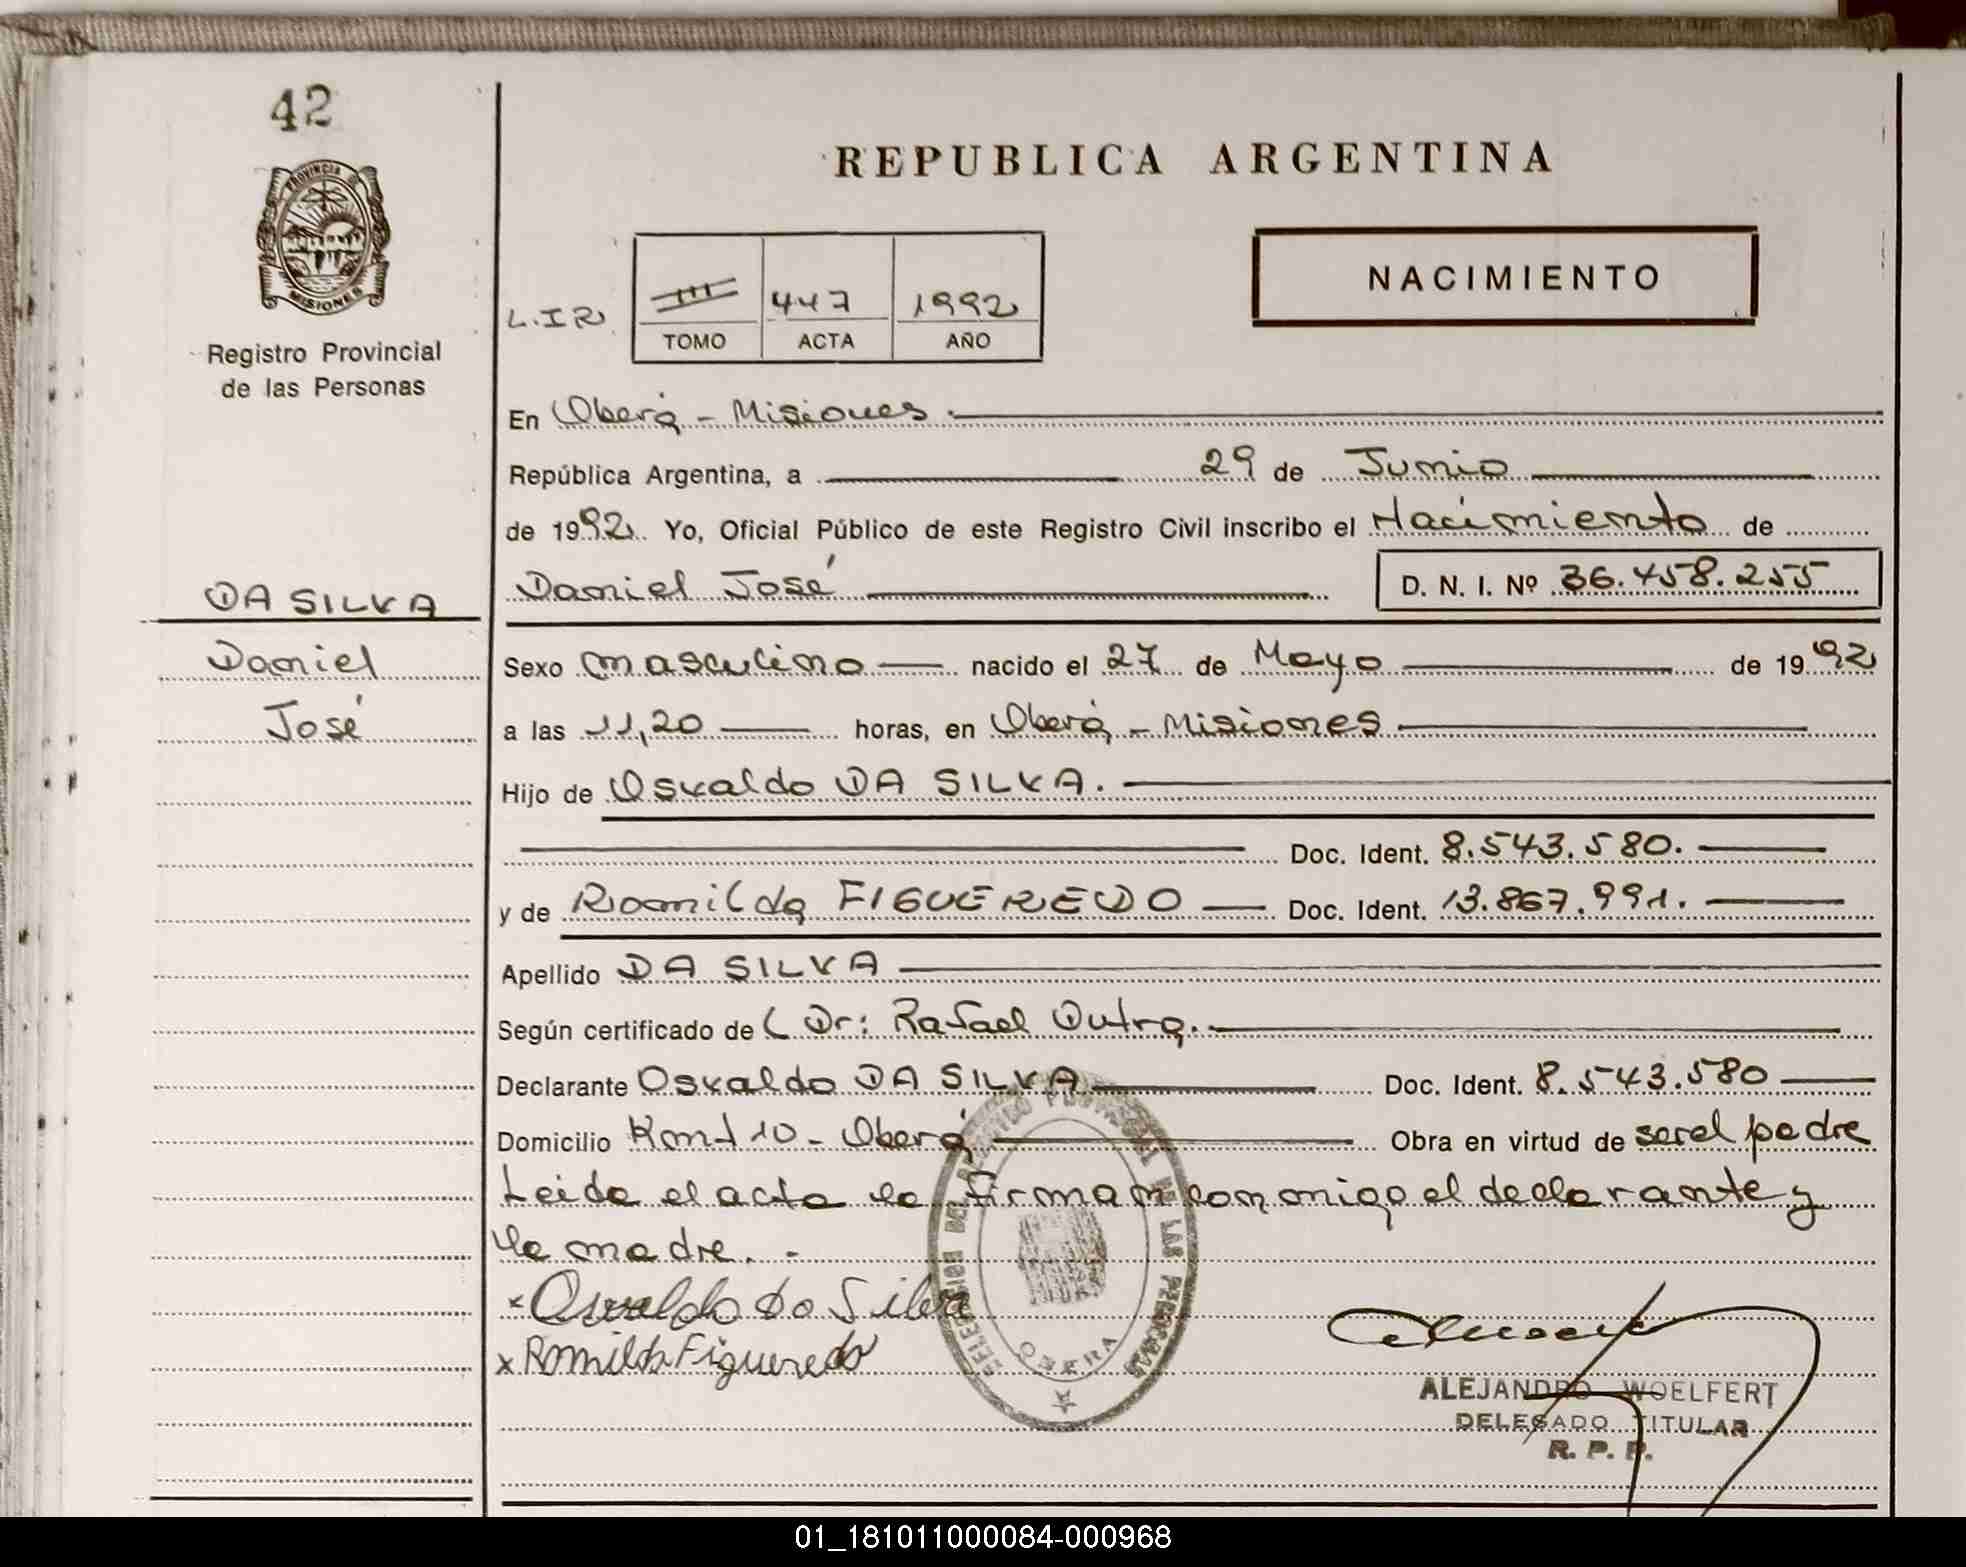 42
PROVINCIA DE
MISIONES
Registro Provincial
de las Personas
DA SILVA
Daniel
José
REPUBLICA ARGENTINA
NACIMIENTO
L.I R.
447 1992
TOMO ACTA AÑO
En Oberá - Misiones.
República Argentina, a 29 de Junio
de 1992. Yo, Oficial Público de este Registro Civil inscribo el Nacimiento de
Daniel José D. N. I. Nº 36.458.255
Sexo masculino nacido el 27 de Mayo de 1992
a las 11,20 horas, en Oberá - Misiones
Hijo de Osvaldo DA SILVA.
Doc. Ident. 8.543.580.
y de Romilda FIGUEREDO Doc. Ident. 13.867.991.
Apellido DA SILVA
Según certificado de Dr: Rafael Dutra.
Declarante Osvaldo DA SILVA Doc. Ident. 8.543.580
Domicilio Km 10 - Oberá Obra en virtud de ser el padre
Leida el acta la firman conmigo el declarante y
la madre. -
x Osvaldo Da Silva
x Romilda Figueredo
DELEGACION DEL REGISTRO PROVINCIAL DE LAS PERSONAS
OBERA
ALEJANDRO WOELFERT
DELEGADO TITULAR
R. P. P.
01_181011000084-000968